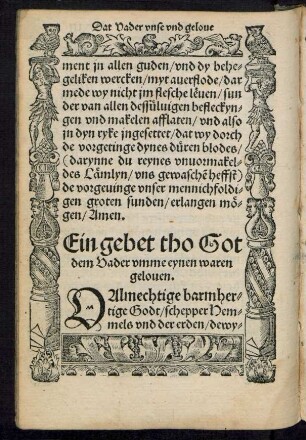 Dat Vader vnse vnd gelove
ment jn allen guden/vnd dy behe-
geliken wercken/myt averflode/dar
mede wy nicht jm flesche lëuen/sun
der van allen dessüluigen befleckyn-
gen vnd makelen afflaten/vnd also
jn dyn ryke jngesettet/dat wy dorch
de vorgetinge dynes düren blodes/
(darynne du reynes vnuormakel-
des Lämlyn/vns gewaschē heffst)
de vorgeuinge vnser mennichfoldi-
gen groten sunden/erlangen mö-
gen/Amen.
Ein gebet tho Got
dem Vader vmme eynen waren
gelouen.
O Almechtige barmher-
tige Godt/schepper Hem-
mels vnd der erden/dewy-